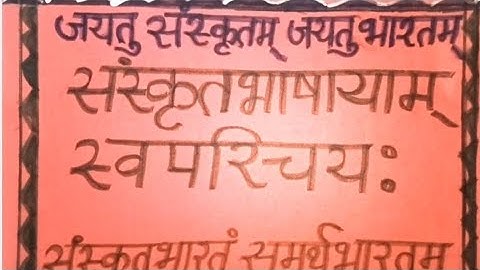 जयतु संस्कृतम् जयतु भारतम्
संस्कृतभाषायाम्
स्वपरिचयः
संस्कृतभारतं समर्थभारतम्